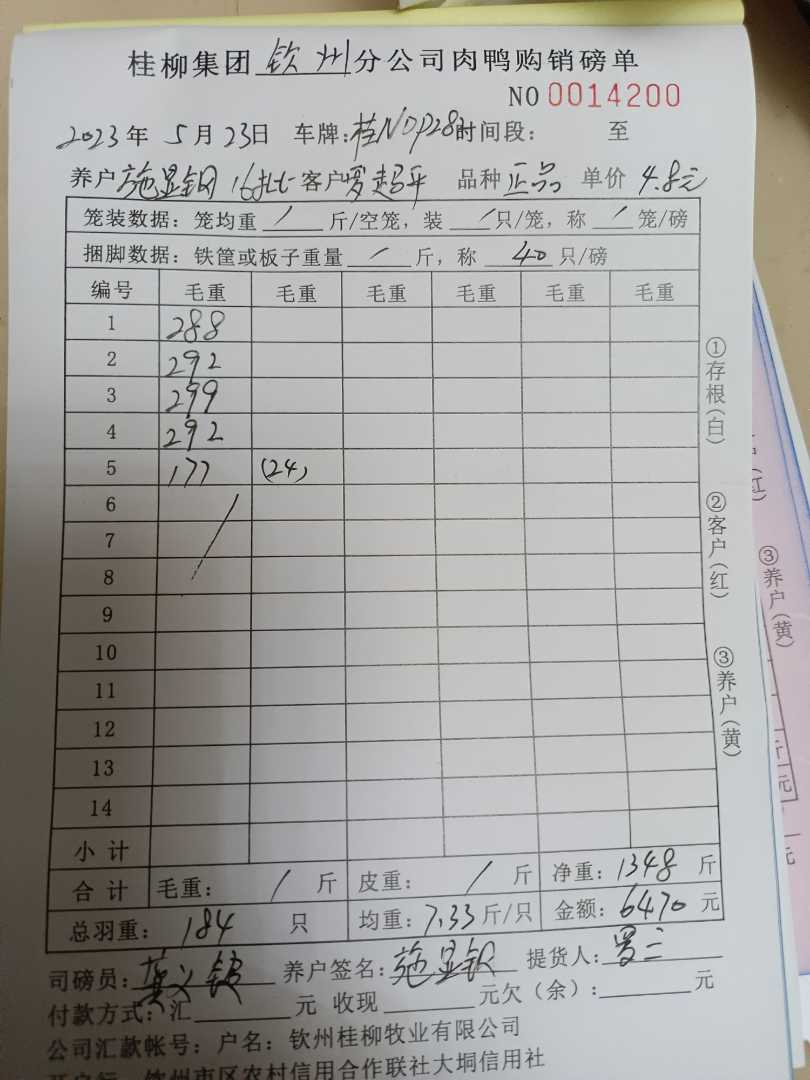 桂柳集团 钦州 分公司肉鸭购销磅单
NO 0014200
2023年 5月23日 车牌: 时间段: 至
养户 施显钢 16批 客户 罗超平 品种 正品 单价 4.8元
笼装数据: 笼均重 / 斤/空笼, 装 / 只/笼, 称 / 笼/磅
捆脚数据: 铁筐或板子重量 / 斤, 称 40 只/磅
编号 毛重 毛重 毛重 毛重 毛重 毛重
1 288
2 292
3 299
4 292
5 177 (24)
6
7
8
9
10
11
12
13
14
小计
合计 毛重: / 斤 皮重: / 斤 净重: 1348 斤
总羽重: 184 只 均重: 7.33 斤/只 金额: 6470 元
司磅员: 养户签名: 施显钢 提货人: 罗三
付款方式: 汇 元 收现 元欠(余): 元
公司汇款帐号: 户名: 钦州桂柳牧业有限公司
开户行: 钦州市区农村信用合作联社大垌信用社
①存根(白)
②客户(红)
③养户(黄)
(红)
③养户(黄)
斤
元